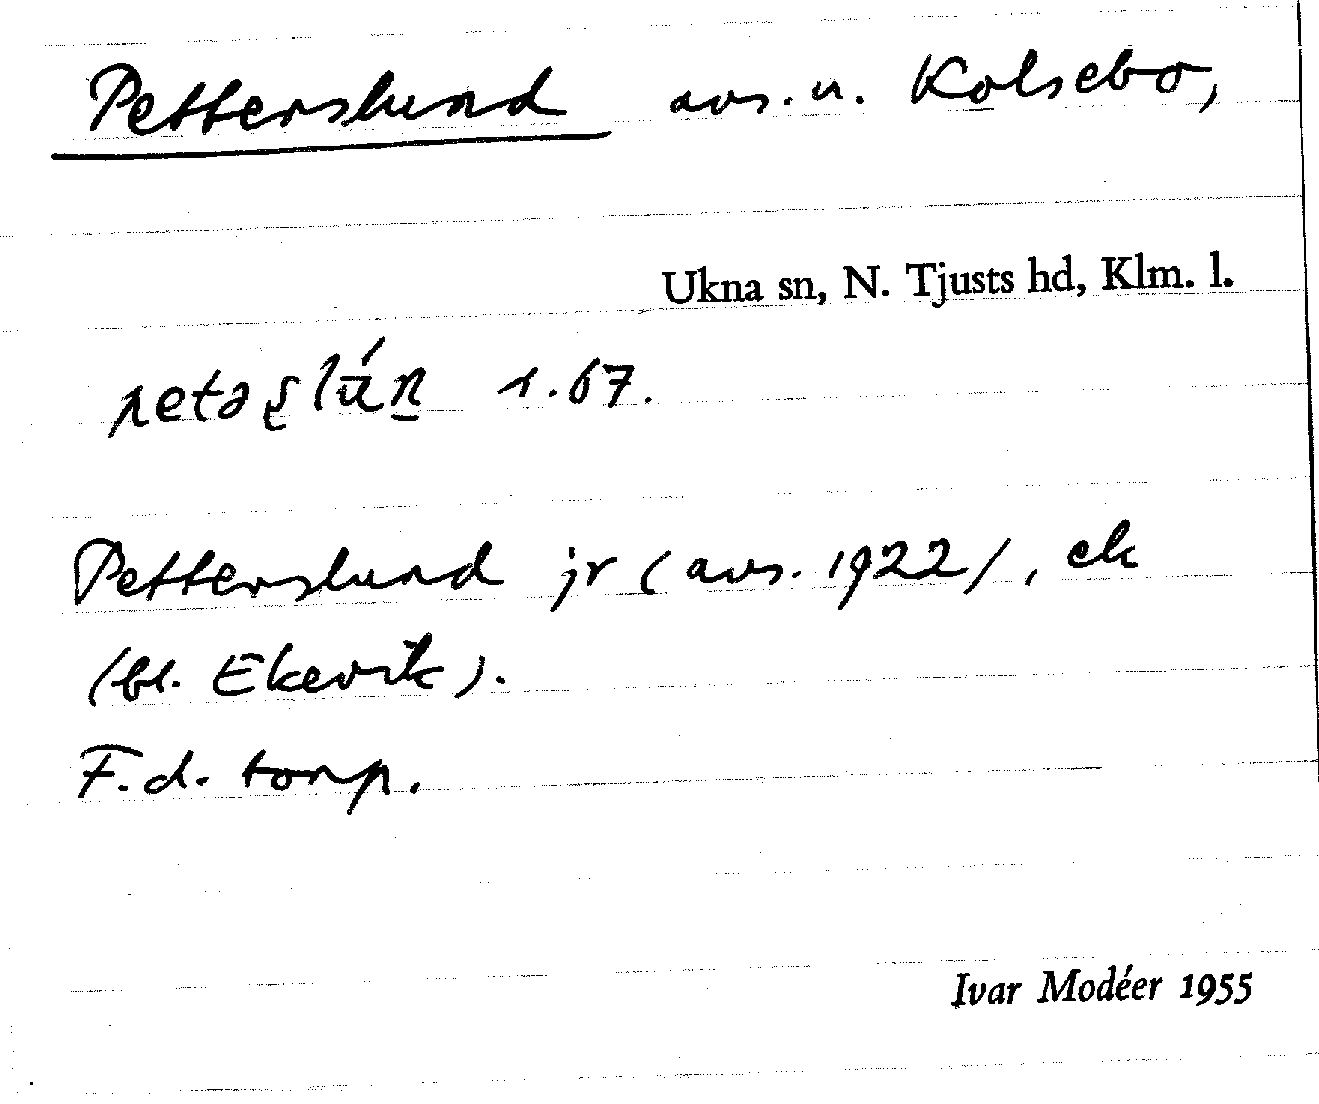 Petterslund avs. u. Kolsebo,
Ukna sn, N. Tjusts hd, Klm. l.
petəʂlún̠ 1.67.
Petterslund jr (avs. 1922), ek
(bl. Ekevik).
F.d. torp.
Ivar Modéer 1955